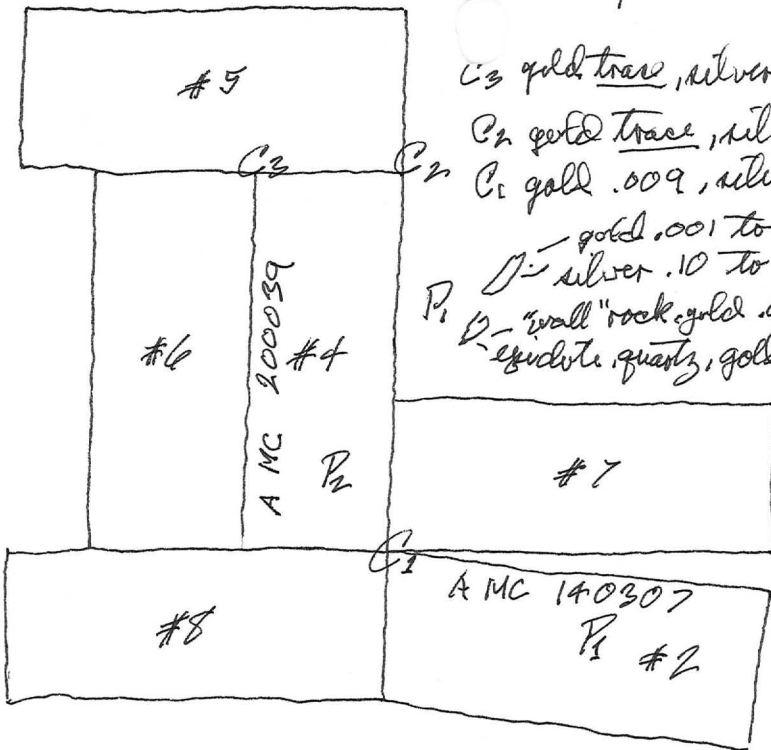 #5
C3 gold trace, silver
C3
C2
C2 gold trace, sil
C1 gold .009, silv
gold .001 to
silver .10 to
P1
"wall" rock, gold .
epidote, quartz, gold
#6
A MC 200039
#4
P2
#7
C1
A MC 140307
P1 #2
#8